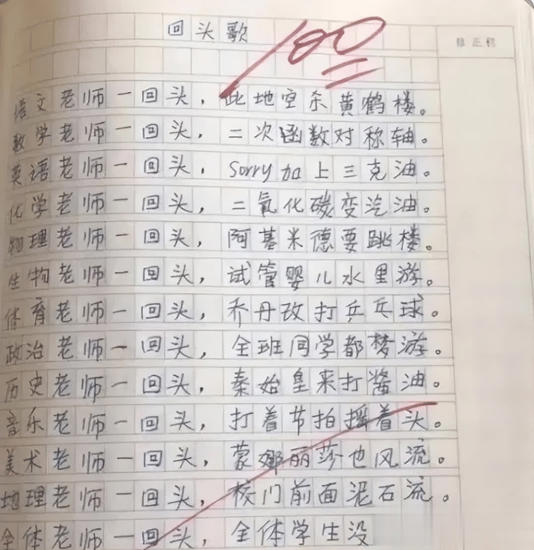 回头歌
100
修正栏
语文老师一回头，此地空余黄鹤楼。
数学老师一回头，二次函数对称轴。
英语老师一回头，Sorry加上三克油。
化学老师一回头，二氧化碳变汽油。
物理老师一回头，阿基米德要跳楼。
生物老师一回头，试管婴儿水里游。
体育老师一回头，乔丹改打乒乓球。
政治老师一回头，全班同学都梦游。
历史老师一回头，秦始皇来打酱油。
音乐老师一回头，打着节拍摇着头。
美术老师一回头，蒙娜丽莎也风流。
地理老师一回头，校门前面泥石流。
全体老师一回头，全体学生没